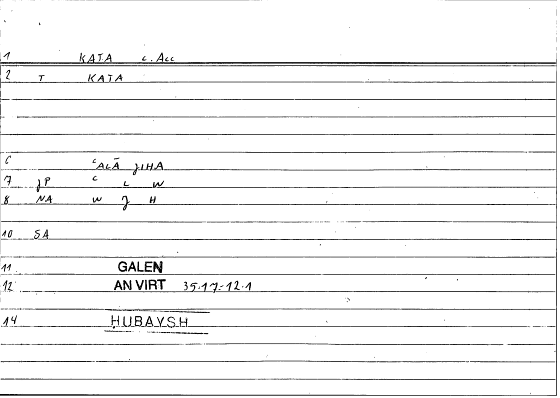 1 KATA c. Acc
2 T KATA
6 ʿALĀ ǧIHA
7 ǧP ʿ L W
8 NA W ǧ H
10 SA
11 GALEN
12 AN VIRT 35.17-12.1
14 ḤUBAYSH